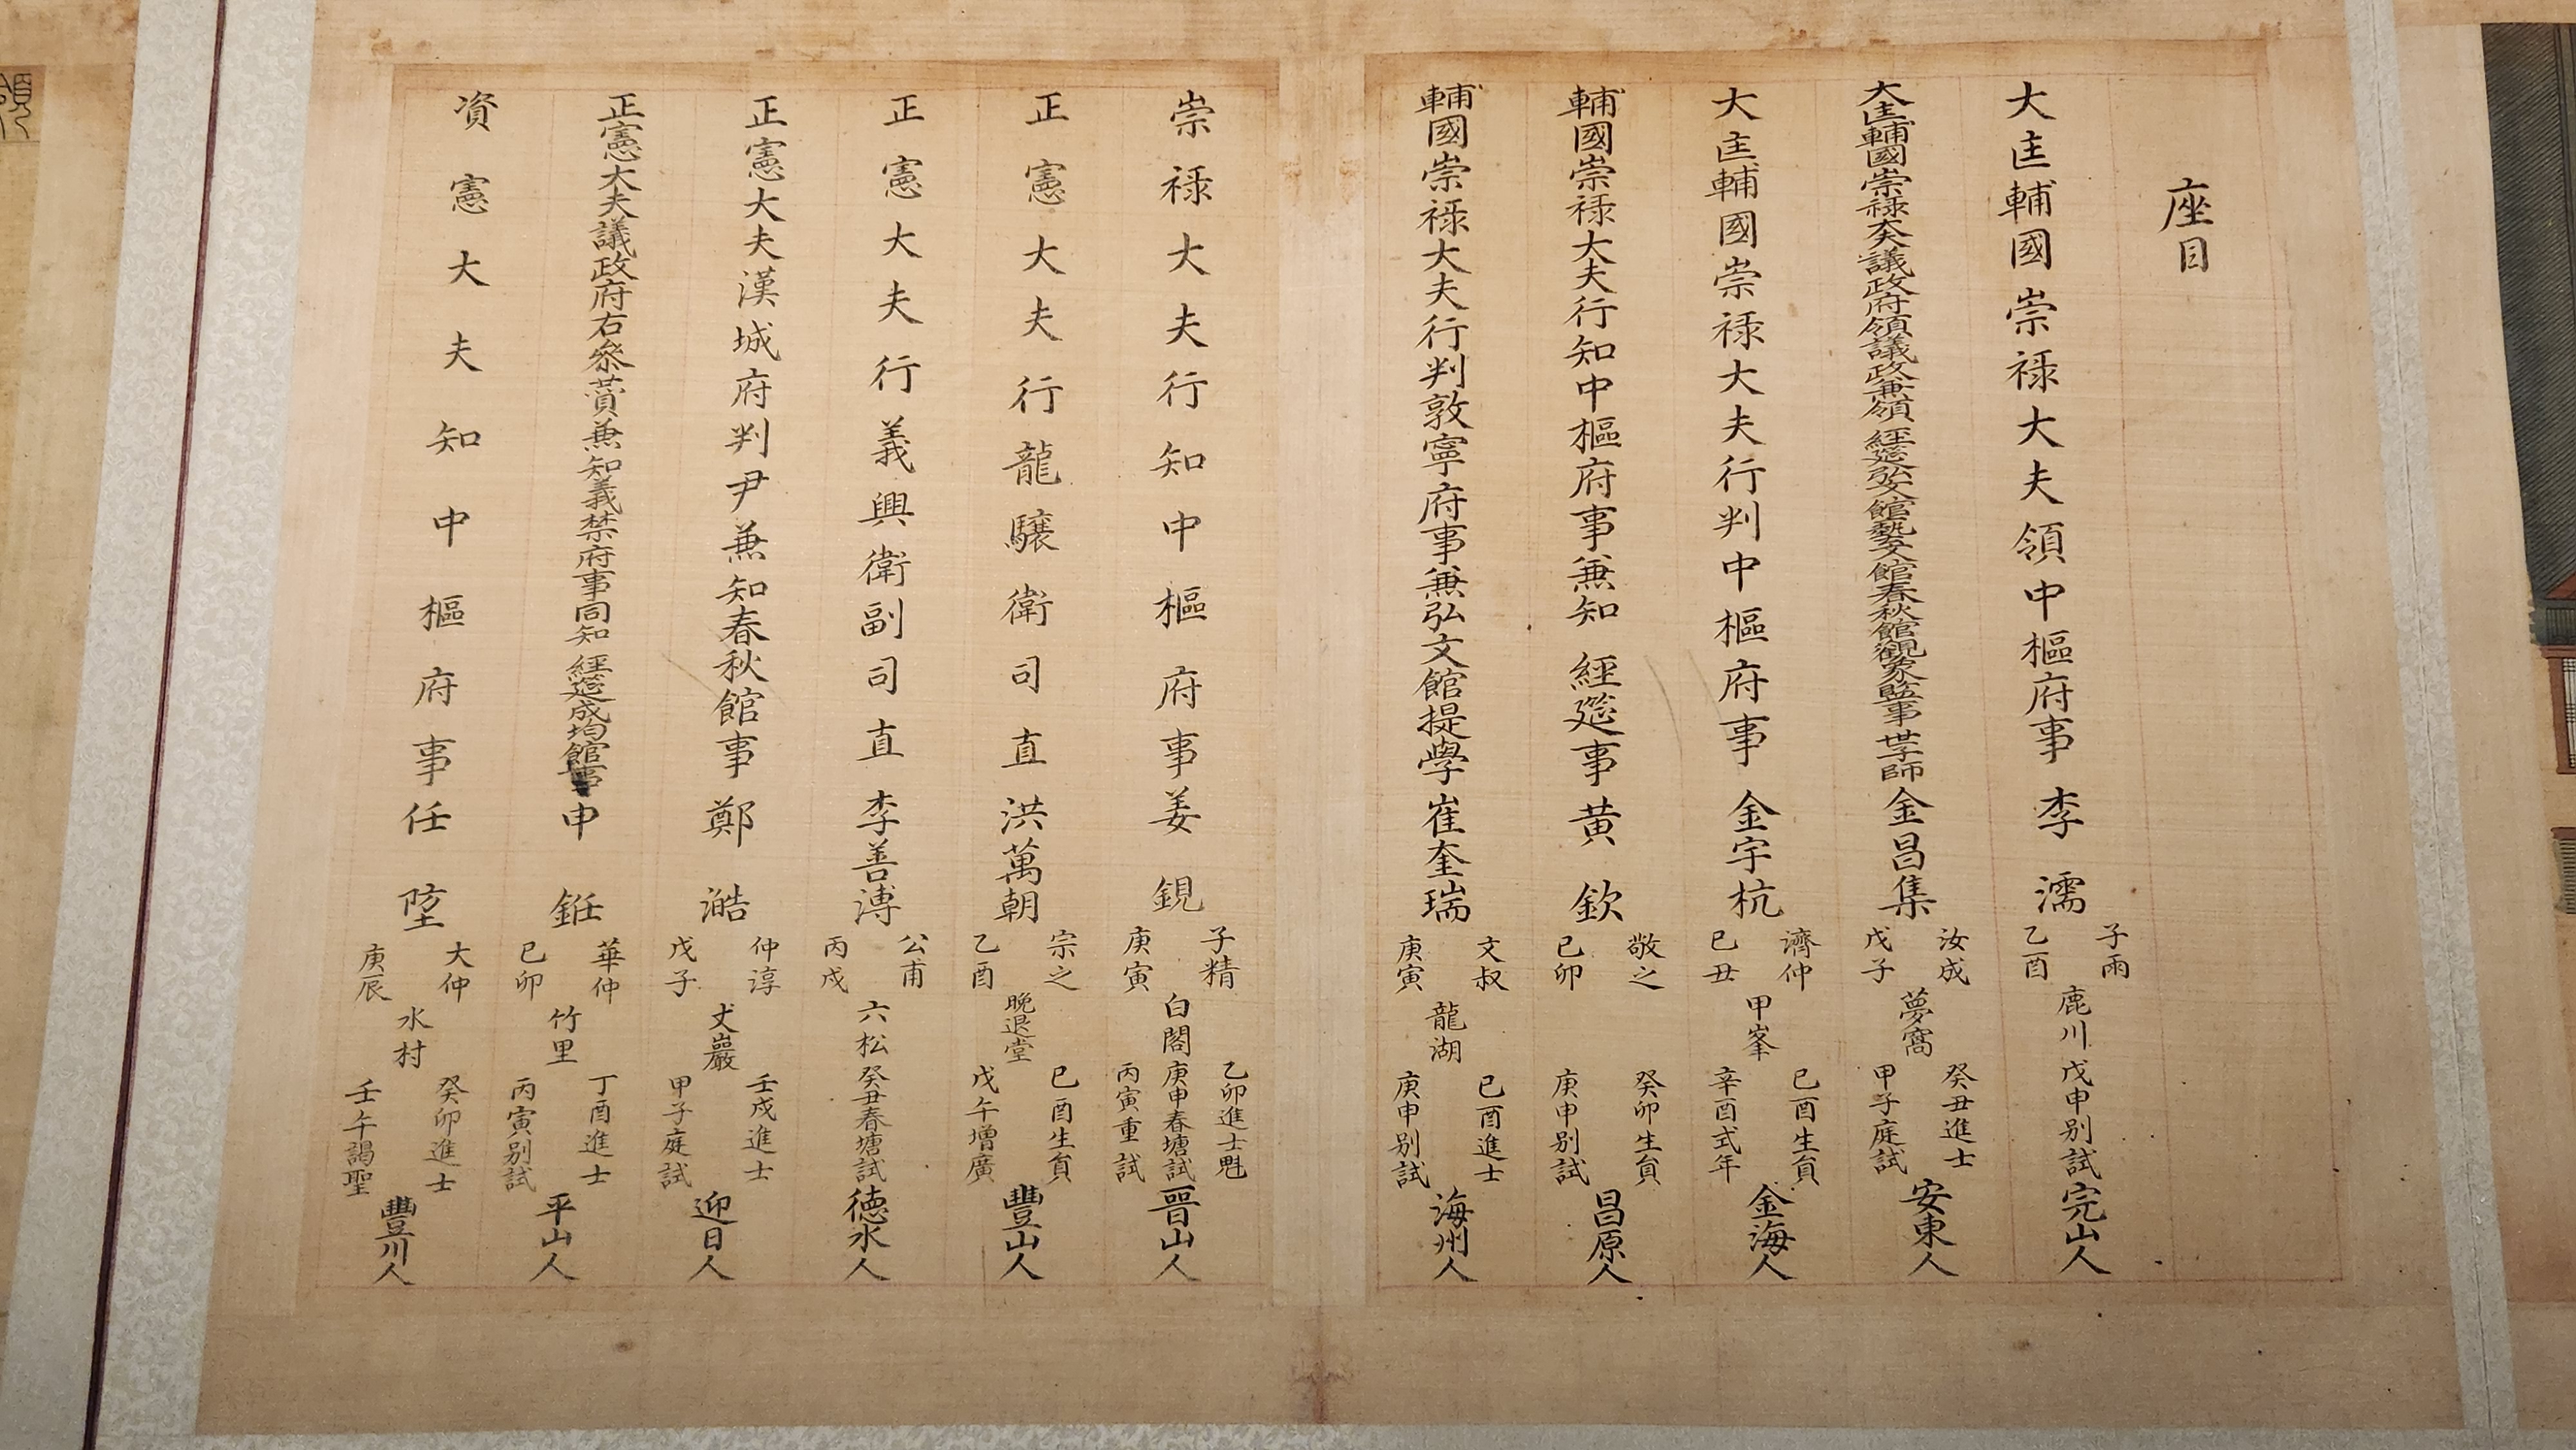 座目
大匡輔國崇祿大夫領中樞府事李濡 子雨 乙酉 鹿川 戊申別試 完山人
大匡輔國崇祿大夫議政府領議政兼領 經筵弘文館藝文館春秋館觀象監事 世子師金昌集 汝成 戊子 夢窩 癸丑進士 甲子庭試 安東人
大匡輔國崇祿大夫行判中樞府事金宇杭 濟仲 己丑 甲峯 己酉生員 辛酉式年 金海人
輔國崇祿大夫行知中樞府事兼知 經筵事黃欽 敬之 己卯 癸卯生員 庚申別試 昌原人
輔國崇祿大夫行判敦寧府事兼弘文館提學崔奎瑞 文叔 庚寅 龍湖 己酉進士 庚申別試 海州人
崇祿大夫行知中樞府事姜鋧 子精 庚寅 白閣 乙卯進士魁 庚申春塘試 丙寅重試 晉山人
正憲大夫行龍驤衛司直洪萬朝 宗之 乙酉 晚退堂 己酉生員 戊午增廣 豐山人
正憲大夫行義興衛副司直李善溥 公甫 丙戌 六松 癸丑春塘試 德水人
正憲大夫漢城府判尹兼知春秋館事鄭澔 仲淳 戊子 丈巖 壬戌進士 甲子庭試 迎日人
正憲大夫議政府右參贊兼知義禁府事同知 經筵成均館事申銋 華仲 己卯 竹里 丁酉進士 丙寅別試 平山人
資憲大夫知中樞府事任埅 大仲 庚辰 水村 癸卯進士 壬午謁聖 豐川人